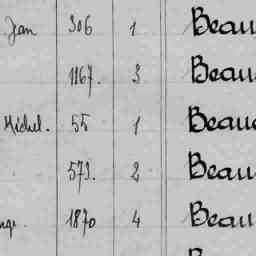 Jean 306 1 Beau
1167. 3 Beau
Michel. 55 1 Beau
573. 2 Beau
1870 4 Beau